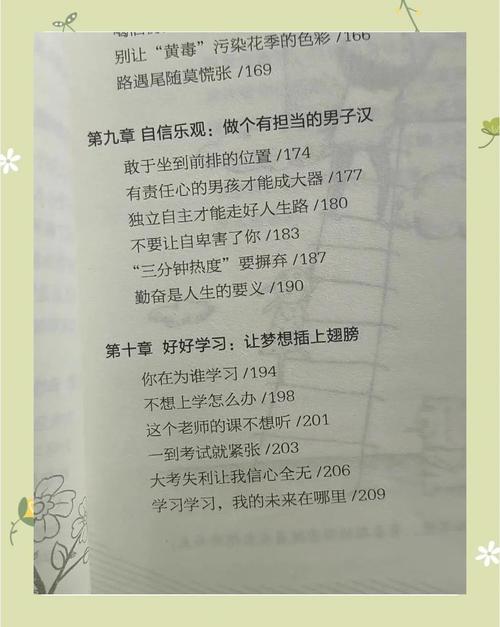 别让“黄毒”污染花季的色彩 /166
路遇尾随莫慌张 /169
第九章 自信乐观：做个有担当的男子汉
敢于坐到前排的位置 /174
有责任心的男孩才能成大器 /177
独立自主才能走好人生路 /180
不要让自卑害了你 /183
“三分钟热度”要摒弃 /187
勤奋是人生的要义 /190
第十章 好好学习：让梦想插上翅膀
你在为谁学习 /194
不想上学怎么办 /198
这个老师的课不想听 /201
一到考试就紧张 /203
大考失利让我信心全无 /206
学习学习，我的未来在哪里 /209